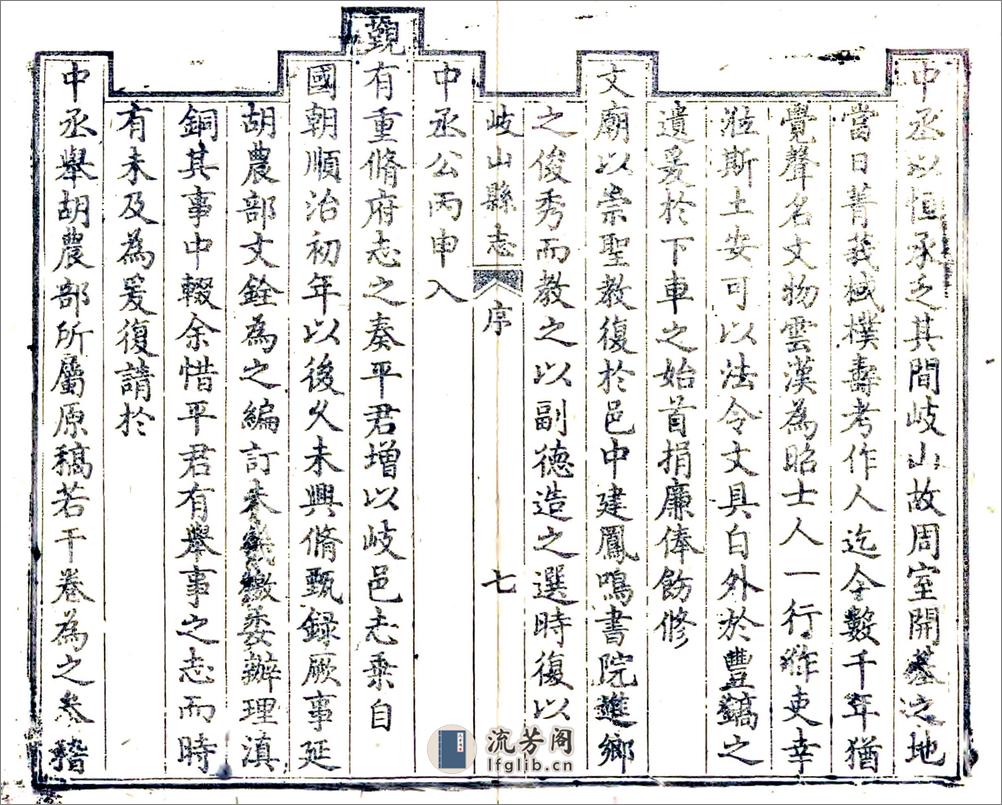 中丞以恒承之其間岐山故周室開基之地
當日菁莪棫樸壽考作人迄今數千年猶
覺聲名文物雲漢為昭士人一行作吏幸
涖斯土安可以法令文具自外於豐鎬之
遺爰於下車之始首捐廉俸飭修
文廟以崇聖教復於邑中建鳳鳴書院進鄉
之俊秀而教之以副德造之選時復以
岐山縣志 序 七
中丞公丙申入
覲有重脩府志之奏平君增以岐邑志乘自
國朝順治初年以後久未興脩甄録厥事延
胡農部文銓為之編訂未幾檄委辦理滇
銅其事中輟余惜平君有舉事之志而時
有未及為爰復請於
中丞舉胡農部所屬原稿若干卷為之叅稽
流芳阁
lfglib.cn